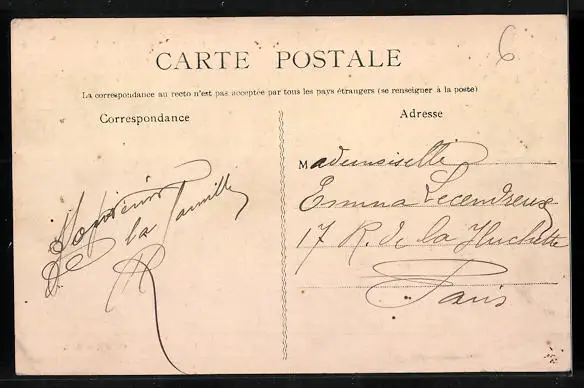 6
CARTE POSTALE
La correspondance au recto n'est pas acceptée par tous les pays étrangers (se renseigner à la poste)
Correspondance
Adresse
Mademoiselle
Emma Lecendreux
17 R. de la Huchette
Paris
la famille
R